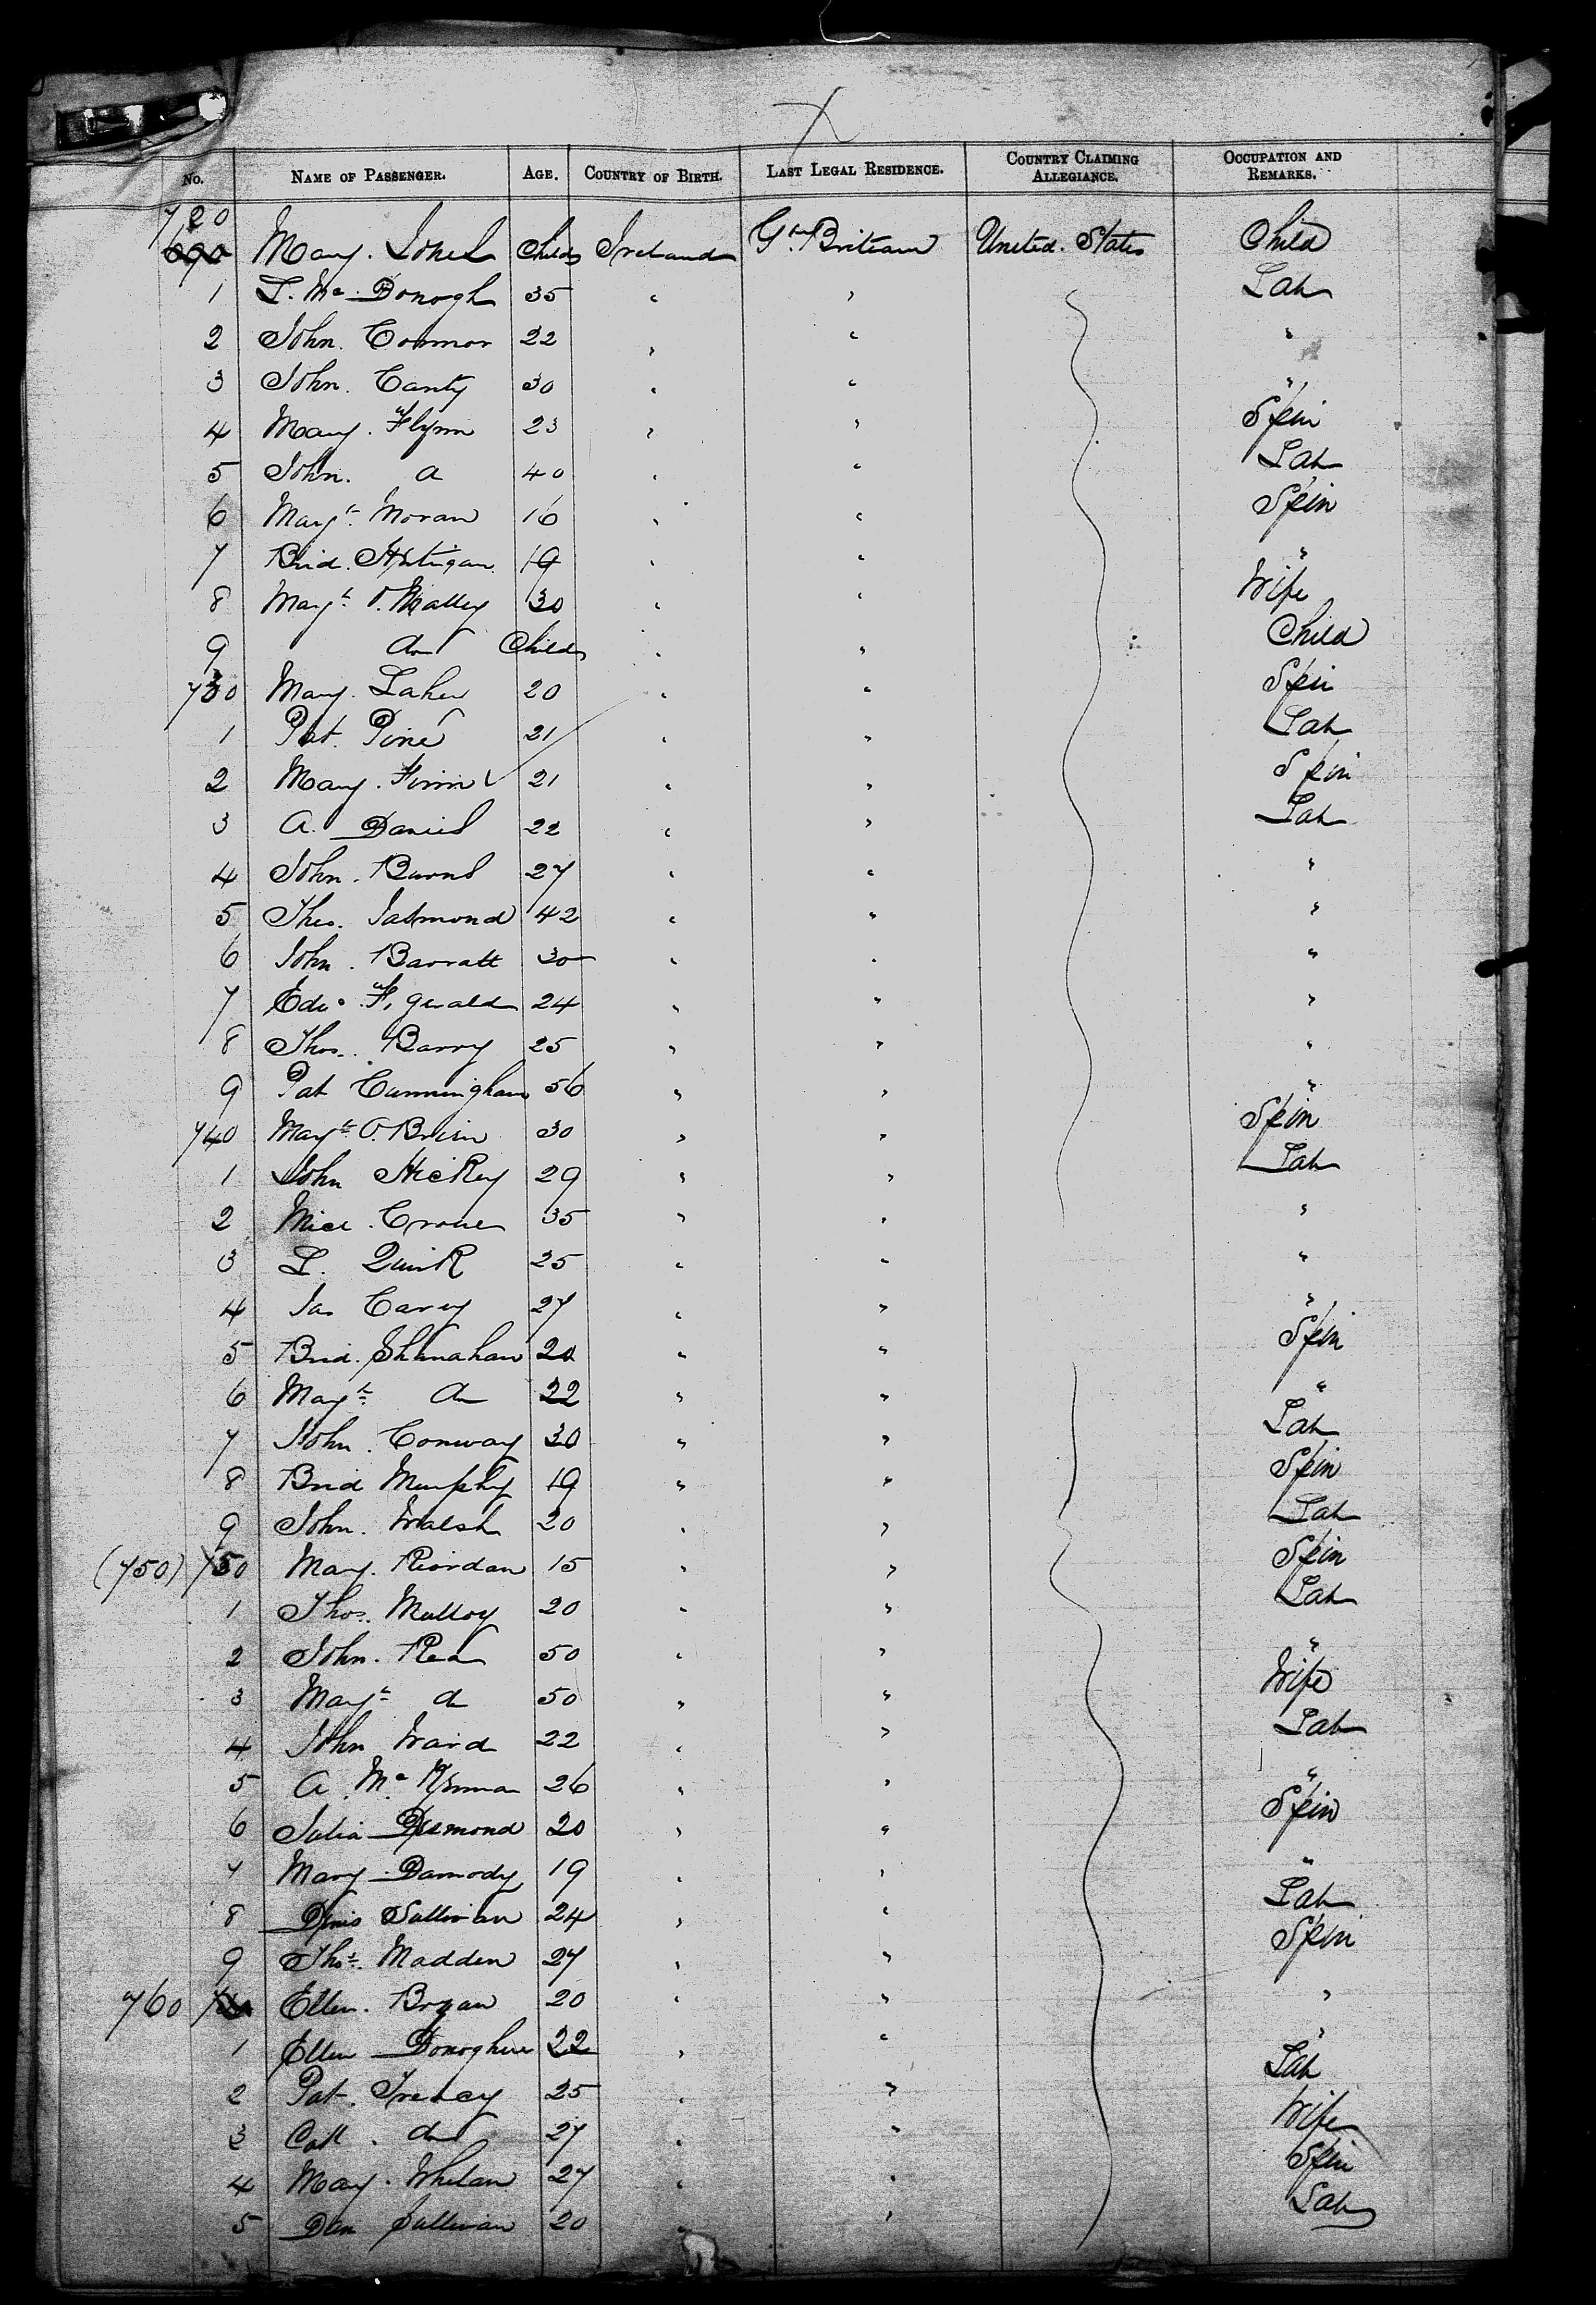 No. NAME OF PASSENGER. AGE. COUNTRY OF BIRTH. LAST LEGAL RESIDENCE. COUNTRY CLAIMING ALLEGIANCE. OCCUPATION AND REMARKS.
720
690 Mary. Jones Child Ireland Gt. Britain United. States Child
1 L. Mc Donogh 35 " " Lab
2 John. Connor 22 " " "
3 John. Canty 30 " " "
4 Mary. Flynn 23 " " Spin
5 John. do 40 " " Lab
6 Margt. Moran 16 " " Spin
7 Brid. Hartigan 19 " " "
8 Margt. O. Malley 30 " " Wife
9 do Child " " Child
730 Mary. Laher 20 " " Spin
1 Pat. 21 " " Lab
2 Mary. Finn 21 " " Spin
3 A. Daniel 22 " " Lab
4 John. Burns 27 " " "
5 Thos. 42 " " "
6 John. Barratt 30 " " "
7 Edw. Fitzgerald 24 " " "
8 Thos. Barry 25 " " "
9 Pat Cunningham 56 " " "
740 Margt. O. Brien 30 " " Spin
1 John Hickey 29 " " Lab
2 Micl. Crowe 35 " " "
3 L. Quirk 25 " " "
4 Jas Carey 27 " " "
5 Brid. Shanahan 20 " " Spin
6 Margt. do 22 " " "
7 John. Conway 30 " " Lab
8 Brid Murphy 19 " " Spin
9 John. Walsh 20 " " Lab
(750) 750 Mary. Riordan 15 " " Spin
1 Thos. Mulloy 20 " " Lab
2 John. Rea 50 " " "
3 Margt. do 50 " " Wife
4 John Ward 22 " " Lab
5 A. Mc 26 " " "
6 Julia Desmond 20 " " Spin
7 Mary Darmody 19 " " "
8 Denis Sullivan 24 " " Lab
9 Thos. Madden 27 " " Spin
760 Ellen. Bryan 20 " " "
1 Ellen Donoghue 22 " " "
2 Pat. Treacy 25 " " Lab
3 Cath. do 27 " " Wife
4 Mary. Whelan 27 " " Spin
5 Dan Sullivan 20 " " Lab